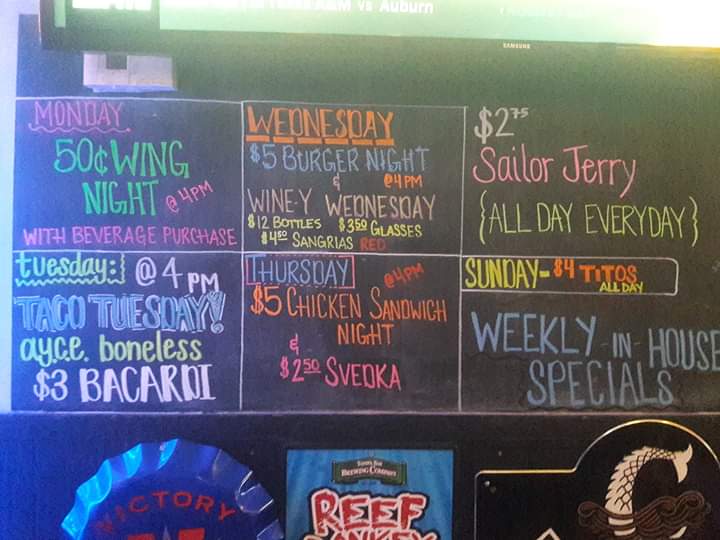 A&M vs Auburn
SAMSUNG
MONDAY
50¢ WING
NIGHT @ 4PM
WITH BEVERAGE PURCHASE
tuesday: @ 4 PM
TACO TUESDAY!
ayce. boneless
$3 BACARDI
WEDNESDAY
$5 BURGER NIGHT
& @4PM
WINE-Y WEDNESDAY
$12 BOTTLES $350 GLASSES
$450 SANGRIAS RED
THURSDAY @4PM
$5 CHICKEN SANDWICH
NIGHT
&
$2.50 SVEDKA
$2.75
Sailor Jerry
{ALL DAY EVERYDAY}
SUNDAY- $4 TITOS
ALL DAY
WEEKLY -IN- HOUSE
SPECIALS
VICTORY
BREWING COMPANY
REEF